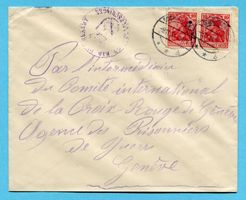 Par l'intermédiaire
du Comité international
de la Croix-Rouge de Genève
Agence des Prisonniers
de Guerre
Genève